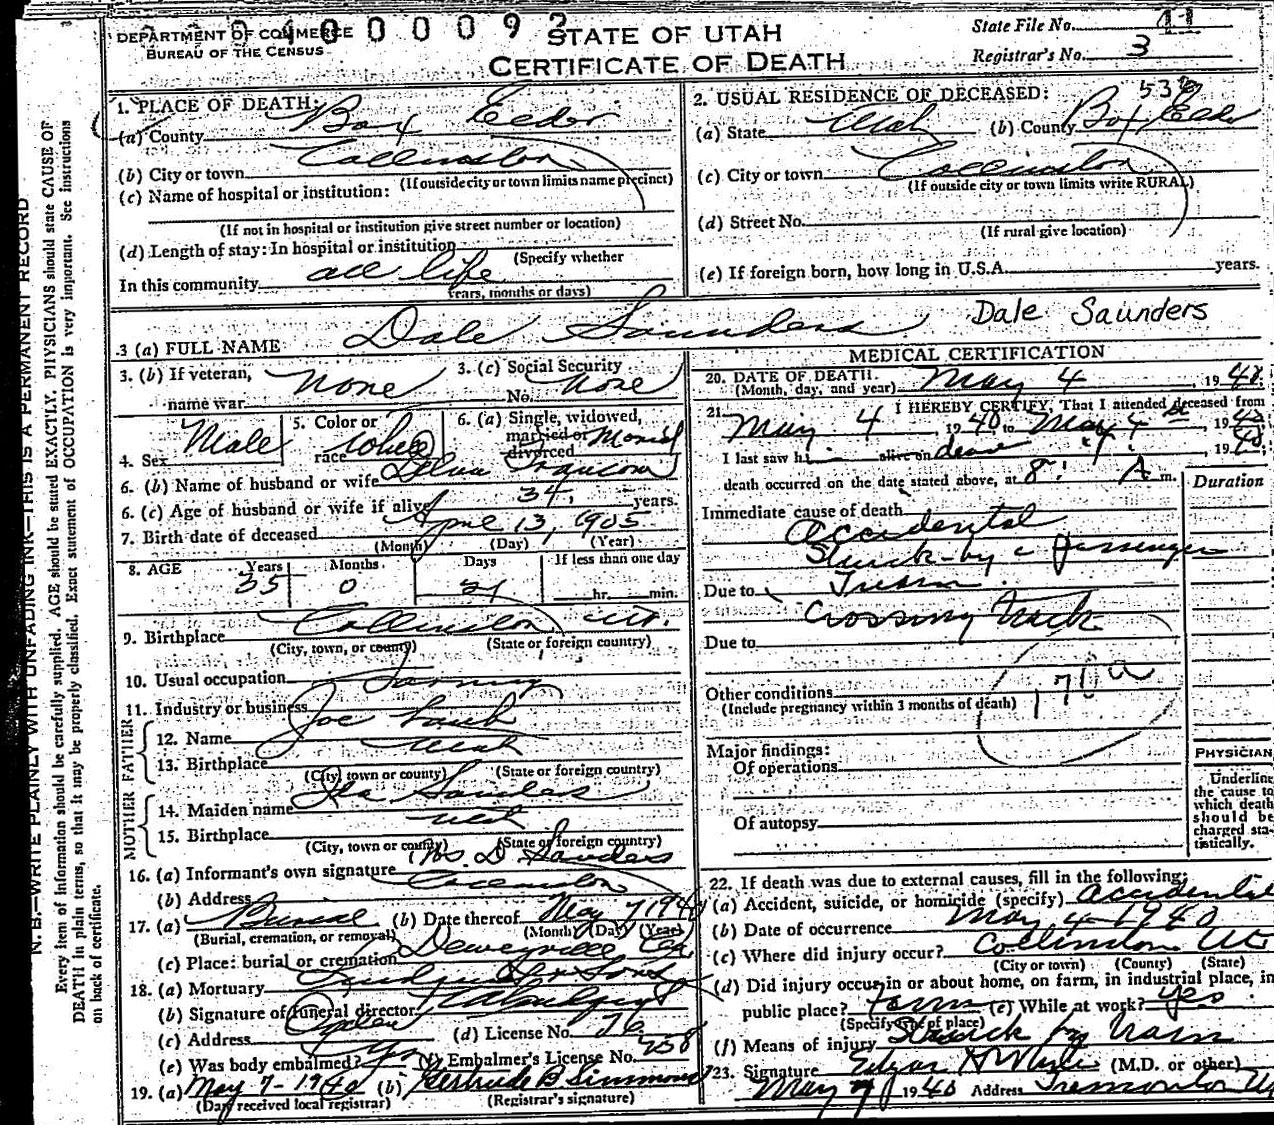 DEPARTMENT OF COMMERCE
BUREAU OF THE CENSUS
STATE OF UTAH
CERTIFICATE OF DEATH
State File No. 41
Registrar's No. 3
N. B.—WRITE PLAINLY WITH UNFADING INK—THIS IS A PERMANENT RECORD
Every item of information should be carefully supplied. AGE should be stated EXACTLY. PHYSICIANS should state CAUSE OF
DEATH in plain terms, so that it may be properly classified. Exact statement of OCCUPATION is very important. See instructions
on back of certificate.
1. PLACE OF DEATH:
(a) County Box Elder
(b) City or town Collinston
(If outside city or town limits name precinct)
(c) Name of hospital or institution:
(If not in hospital or institution give street number or location)
(d) Length of stay: In hospital or institution
(Specify whether
In this community all life
years, months or days)
2. USUAL RESIDENCE OF DECEASED:
(a) State Utah (b) County Box Elder
(c) City or town Collinston
(If outside city or town limits write RURAL)
(d) Street No.
(If rural give location)
(e) If foreign born, how long in U.S.A. years.
3 (a) FULL NAME Dale Saunders Dale Saunders
3. (b) If veteran, name war None
3. (c) Social Security No. None
4. Sex Male
5. Color or race White
6. (a) Single, widowed, married or divorced Married
6. (b) Name of husband or wife Delna
6. (c) Age of husband or wife if alive 34 years.
7. Birth date of deceased April 13, 1905
(Month) (Day) (Year)
8. AGE Years 35 Months 0 Days 21 If less than one day hr. min.
9. Birthplace Collinston Ut.
(City, town, or county) (State or foreign country)
10. Usual occupation Farming
11. Industry or business
FATHER
12. Name Joe
13. Birthplace Utah
(City, town or county) (State or foreign country)
MOTHER
14. Maiden name Ida Sanders
15. Birthplace Utah
(City, town or county) (State or foreign country)
16. (a) Informant's own signature Mrs. D Saunders
(b) Address Collinston
17. (a) Burial (b) Date thereof May 7 1940
(Burial, cremation, or removal) (Month) (Day) (Year)
(c) Place: burial or cremation Deweyville
18. (a) Mortuary Lindquist & Sons
(b) Signature of funeral director
(c) Address Ogden (d) License No. 76
(e) Was body embalmed? Yes (f) Embalmer's License No. 258
19. (a) May 7-1940 (b) Gertrude B Simmons
(Day received local registrar) (Registrar's signature)
MEDICAL CERTIFICATION
20. DATE OF DEATH.
(Month, day, and year) May 4, 1940.
21. I HEREBY CERTIFY, That I attended deceased from
May 4 1940 to May 4, 1940
I last saw h alive on dead, 1940
death occurred on the date stated above, at 8: A m.
Duration
Immediate cause of death
Accidental
Struck by a passenger
Due to Train
Crossing Track
Due to
Other conditions
(Include pregnancy within 3 months of death)
170a
Major findings:
Of operations
Of autopsy
PHYSICIAN
Underline
the cause to
which death
should be
charged sta-
tistically.
22. If death was due to external causes, fill in the following:
(a) Accident, suicide, or homicide (specify) Accidental
(b) Date of occurrence May 4 1940
(c) Where did injury occur? Collinston Ut
(City or town) (County) (State)
(d) Did injury occur in or about home, on farm, in industrial place, in
public place? Farm (e) While at work? Yes
(Specify type of place)
(f) Means of injury Struck by train
23. Signature (M.D. or other)
May 7 1940 Address Tremonton Ut